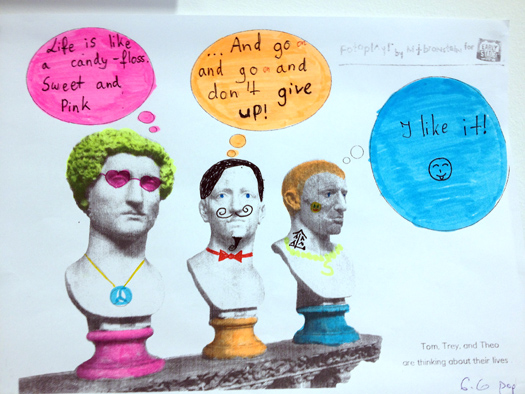 Life is like
a candy-floss.
Sweet and
Pink
... And go on
and go on and
don't give
up!
by
for
I like it!
Tom, Trey, and Theo
are thinking about their lives